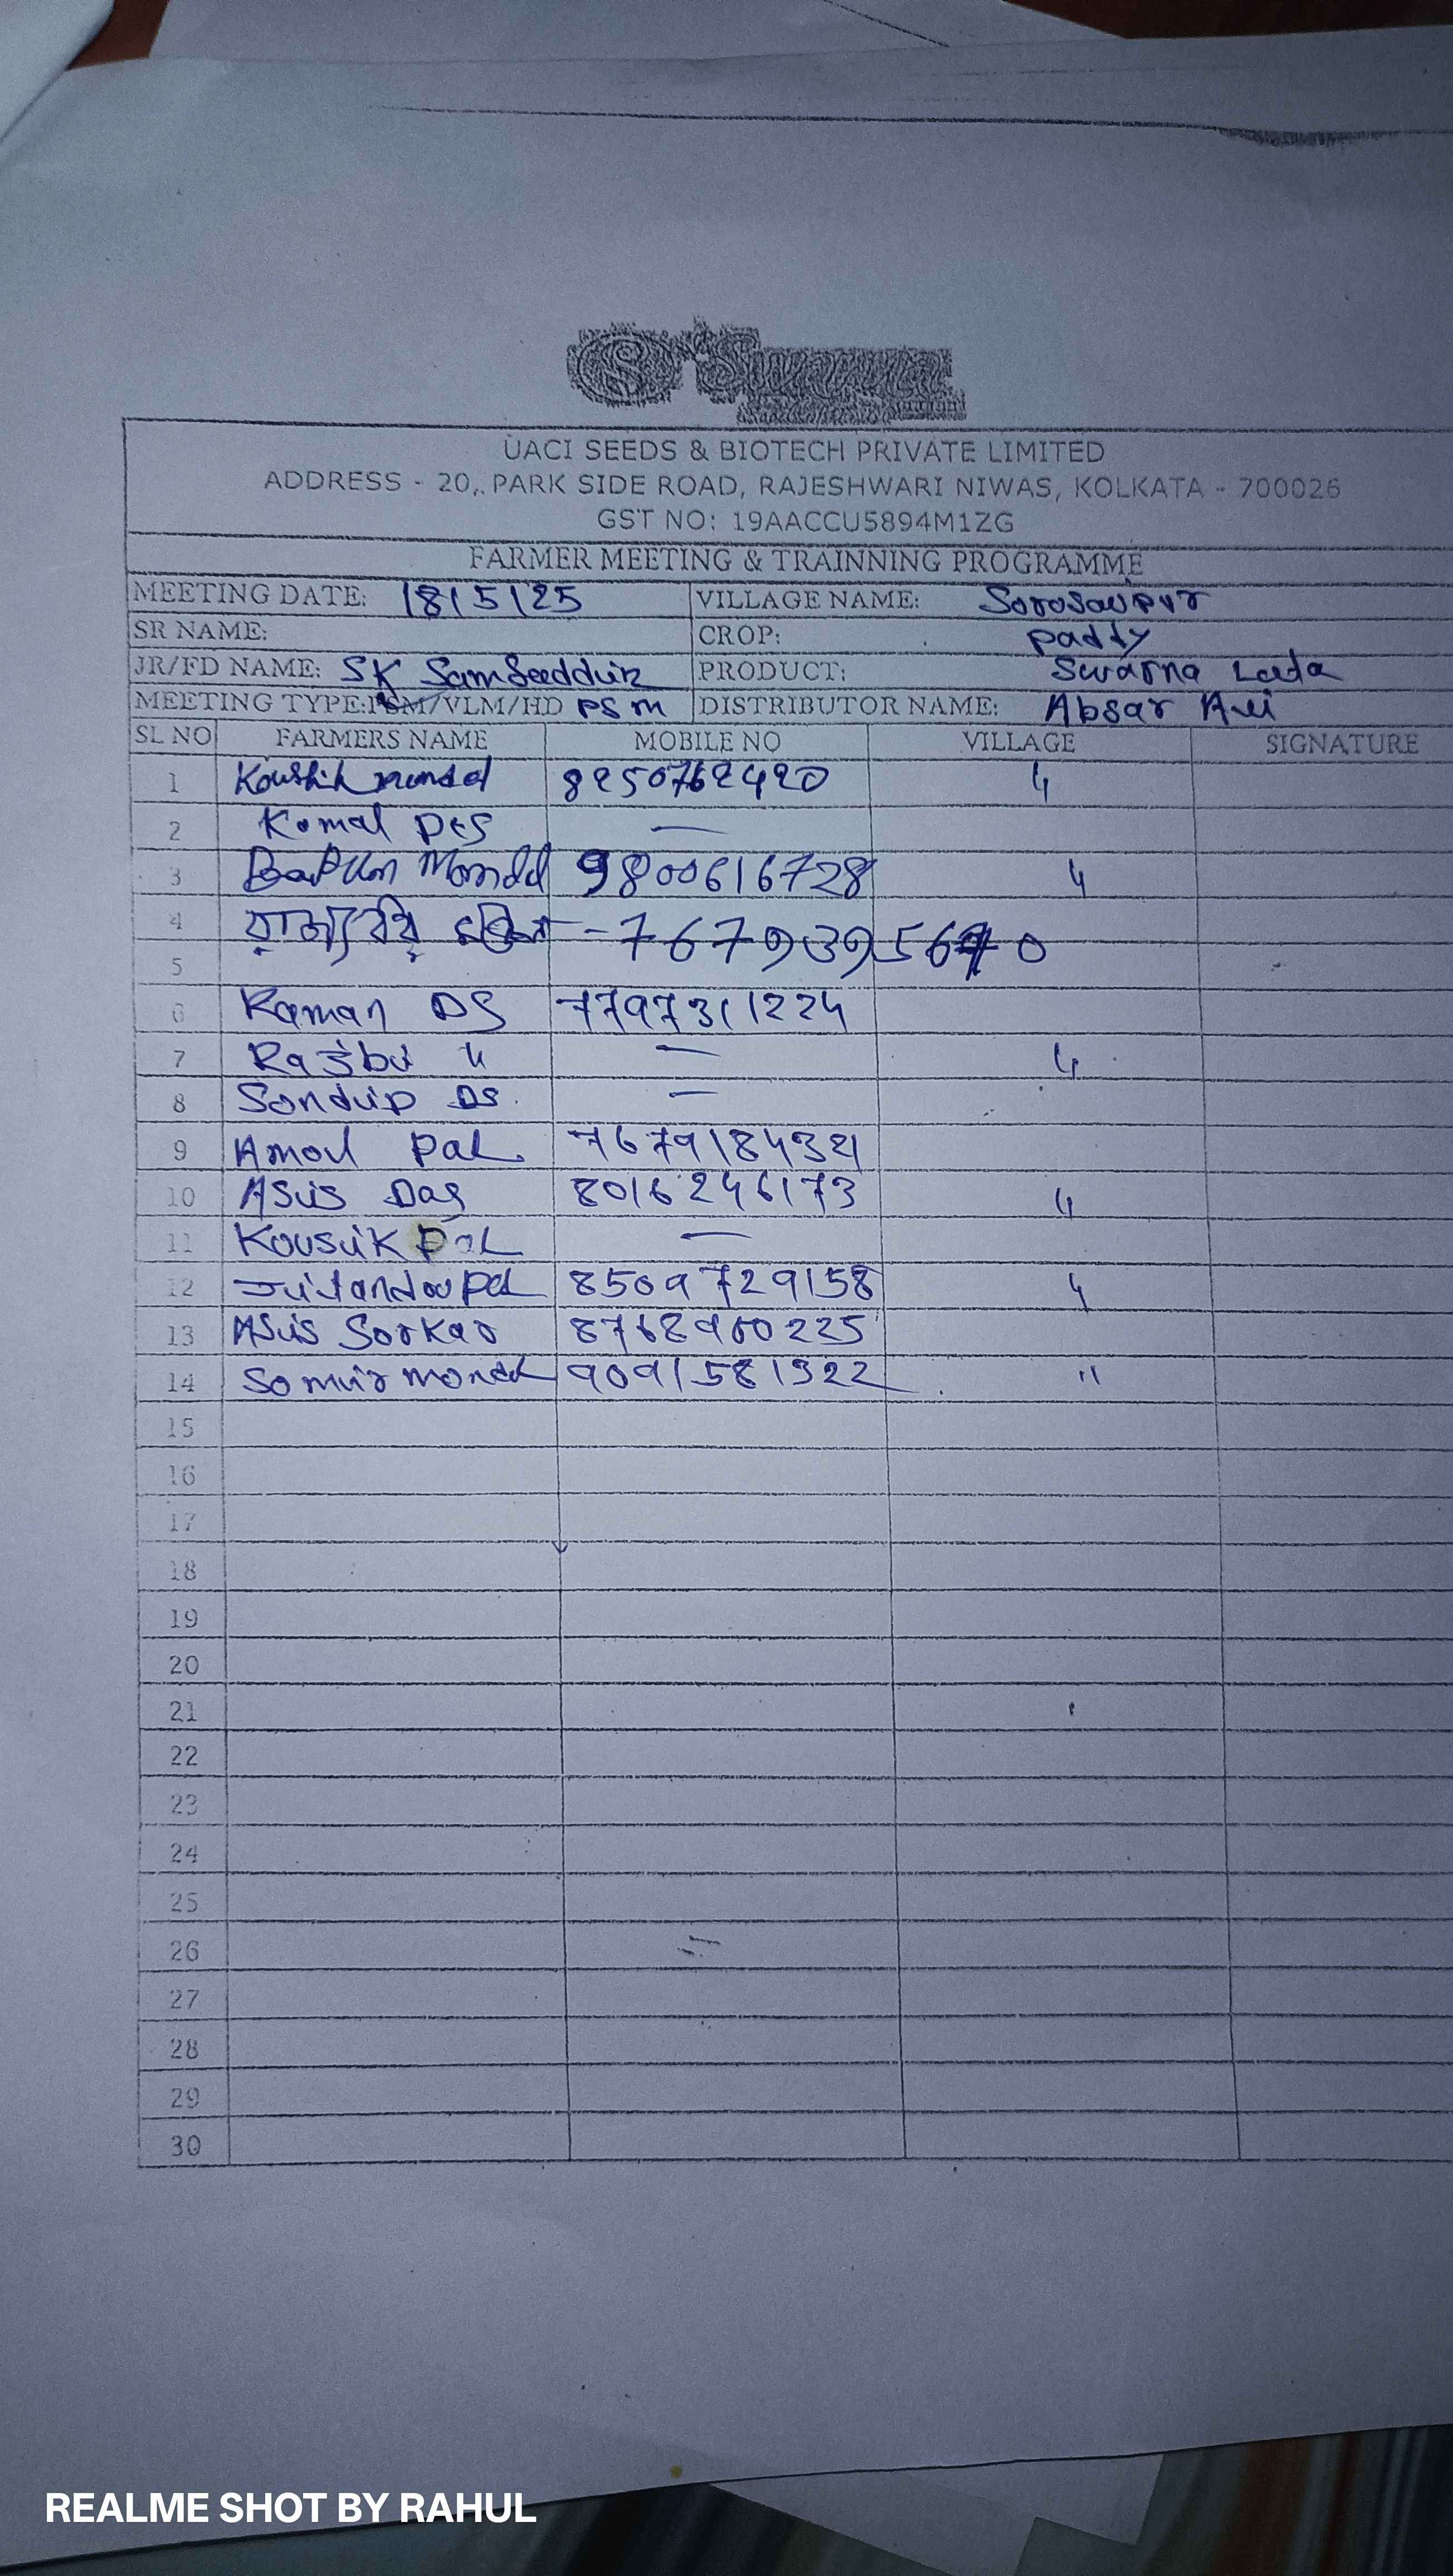 Swarna
UACI SEEDS & BIOTECH PRIVATE LIMITED
ADDRESS - 20, PARK SIDE ROAD, RAJESHWARI NIWAS, KOLKATA - 700026
GST NO: 19AACCU5894M1ZG
FARMER MEETING & TRAINNING PROGRAMME
MEETING DATE: 18/5/25 VILLAGE NAME:
SR NAME: CROP: Paddy
JR/FD NAME: SK PRODUCT: Swarna
MEETING TYPE: PSM/VLM/HD PSM DISTRIBUTOR NAME: Absar Ali
SL NO FARMERS NAME MOBILE NO VILLAGE SIGNATURE
1 Koushik mondal 8250762420 "
2 Komal Das —
3 Bapun Mondal 9800616728 "
4 - 7679395670
5
6 Raman DS 7797311224
7 " — "
8 Sonduip DS. —
9 Amol Pal 7679184321
10 Asis Das 8016246173 "
11 Kousik Pal —
12 Pal 8509729158 "
13 Asis Sorkar 8768960225
14 Somir mondal 9091581322 "
15
16
17
18
19
20
21
22
23
24
25
26
27
28
29
30
REALME SHOT BY RAHUL